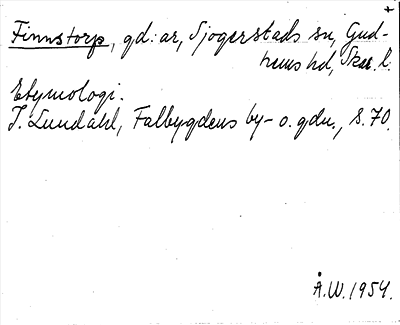 Finnstorp, gd: ar, Sjogerstads sn, Gud-
hems hd, Skar. l.
Etymologi.
I. Lundahl, Falbygdens by- o. gdn., s. 70.
Å.W. 1954.